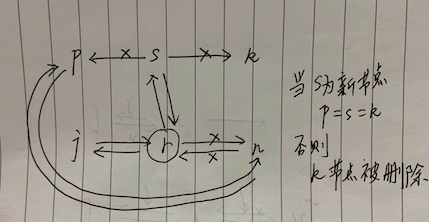 p s k
j r n
当s为新节点
p=s=k
否则
k节点被删除